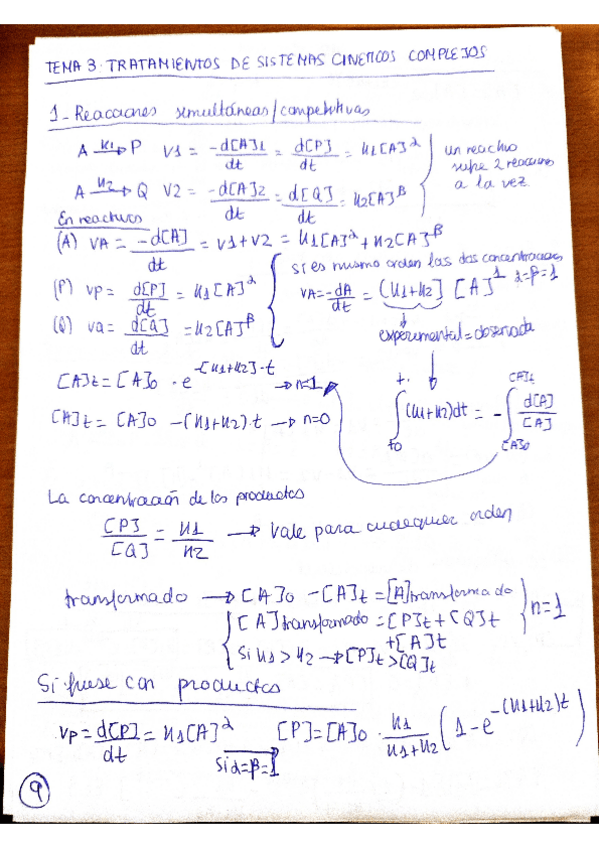 TEMA 3: TRATAMIENTOS DE SISTEMAS CINETICOS COMPLEJOS
1- Reacciones simultáneas/competitivas
A —k1→ P   V1 = -d[A]1/dt = d[P]/dt = k1[A]^α
un reactivo sufre 2 reacciones a la vez.
A —k2→ Q   V2 = -d[A]2/dt = d[Q]/dt = k2[A]^β
En reactivos
(A) VA = -d[A]/dt = V1+V2 = k1[A]^α + k2[A]^β
(P) VP = d[P]/dt = k1[A]^α
(Q) VQ = d[Q]/dt = k2[A]^β
si es mismo orden las dos concentraciones
VA = -dA/dt = (k1+k2) [A]^1   α=β=1
experimental = observada
[A]t = [A]0 · e^-[k1+k2]·t → n=1
[A]t = [A]0 - (k1+k2)·t → n=0
∫ t0 t (k1+k2)dt = - ∫ [A]0 [A]t d[A]/[A]
La concentración de los productos
[P]/[Q] = k1/k2 → Vale para cualequer orden
transformado → [A]0 - [A]t = [A]transformado
[A]transformado = [P]t + [Q]t
+[A]t
n=1
Si k1 > k2 → [P]t > [Q]t
Si fuese con productos
VP = d[P]/dt = k1[A]^α   [P] = [A]0 · k1/(k1+k2) (1 - e^-(k1+k2)t)
Si α=β=1
9